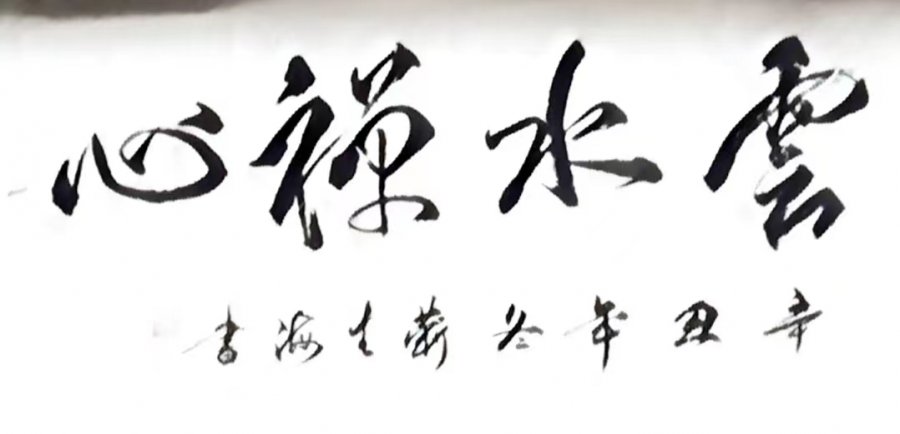 雲水禪心
辛丑年冬蘄春海書